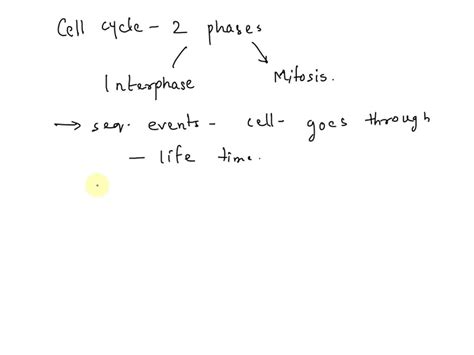 Cell cycle - 2 phases
Interphase Mitosis.
→ seq. events - cell - goes through
- life time.